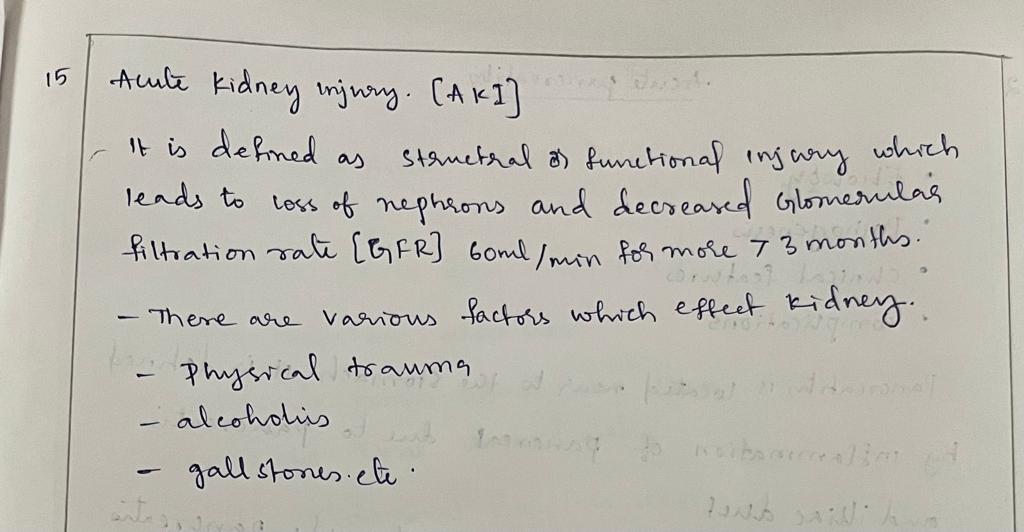 15 Acute kidney injury. [AKI]
- It is defined as structral or functional injury which
leads to loss of nephrons and decreased Glomerular
filtration rate [GFR] 60ml/min for more > 3 months.
- There are various factors which effect kidney.
- Physical trauma
- alcoholis
- gall stones. etc.